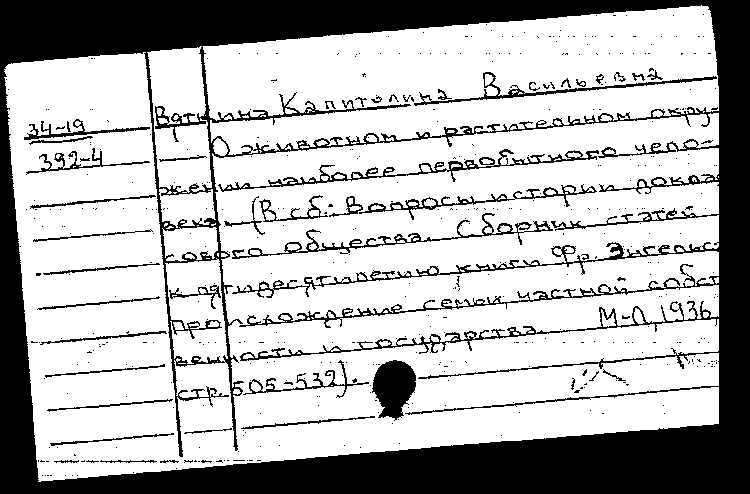 34-19
392-4
Вяткина, Капитолина Васильевна
О животном и растительном окру-
жении наиболее первобытного чело-
века. (В сб.: Вопросы истории доклас
сового общества. Сборник статей
к пятидесятилетию книги Фр. Энгельса
Происхождение семьи, частной собст
венности и государства. М-Л, 1936,
стр. 505-532).